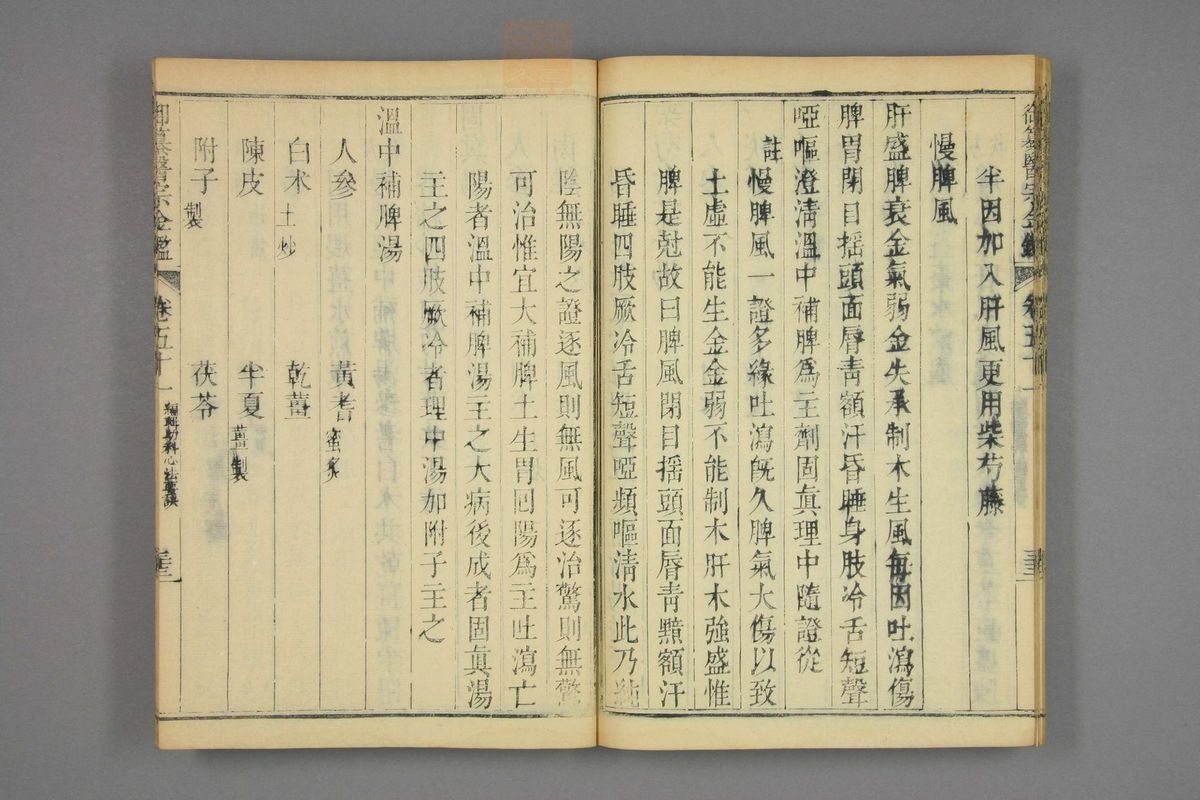 御纂醫宗金鑑 卷五十一
半因加入肝風更用柴芍藤
慢脾風
肝盛脾衰金氣弱金失承制木生風每因吐瀉傷
脾胃閉目搖頭面唇青額汗昏睡身肢冷舌短聲
啞嘔澄清溫中補脾爲主劑固眞理中隨證從
註慢脾風一證多緣吐瀉旣久脾氣大傷以致
土虛不能生金金弱不能制木肝木強盛惟
脾是尅故曰脾風閉目搖頭面唇青黯額汗
昏睡四肢厥冷舌短聲啞頻嘔淸水此乃純
陰無陽之證逐風則無風可逐治驚則無驚
可治惟宜大補脾土生胃回陽爲主吐瀉亡
陽者溫中補脾湯主之大病後成者固眞湯
主之四肢厥冷者理中湯加附子主之
溫中補脾湯
人參 黃耆蜜炙
白朮土炒 乾薑
陳皮 半夏薑製
附子製 茯苓
御纂醫宗金鑑 卷五十一 編輯幼科心法要訣 三三